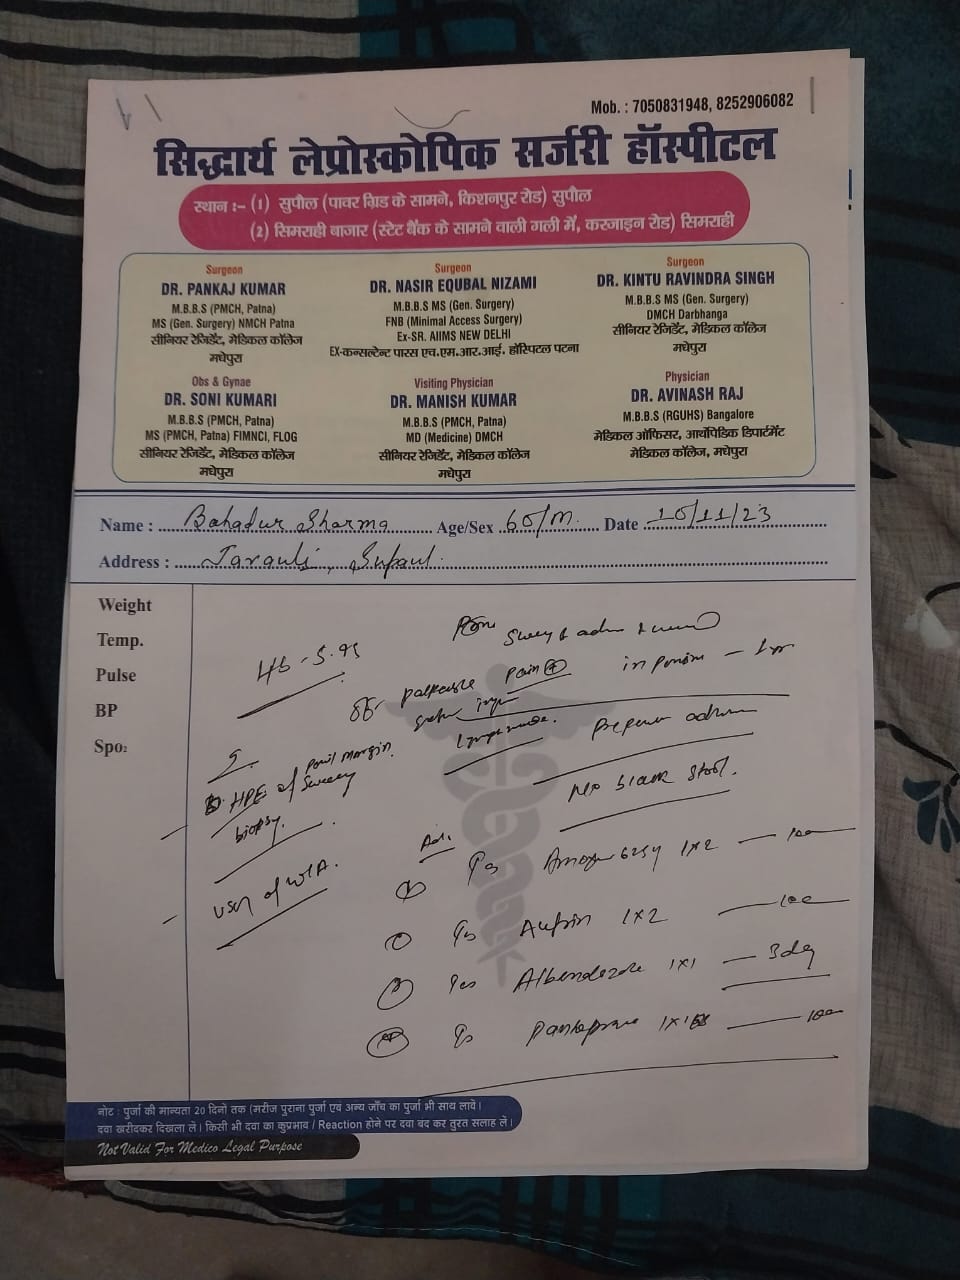 Mob. : 7050831948, 8252906082
सिद्धार्थ लेप्रोस्कोपिक सर्जरी हॉस्पीटल
स्थान :- (1) सुपौल (पावर ग्रिड के सामने, किशनपुर रोड) सुपौल
(2) सिमराही बाजार (स्टेट बैंक के सामने वाली गली में, करजाइन रोड) सिमराही
Surgeon
DR. PANKAJ KUMAR
M.B.B.S (PMCH, Patna)
MS (Gen. Surgery) NMCH Patna
सीनियर रेजिडेंट, मेडिकल कॉलेज
मधेपुरा
Surgeon
DR. NASIR EQUBAL NIZAMI
M.B.B.S MS (Gen. Surgery)
FNB (Minimal Access Surgery)
Ex-SR. AIIMS NEW DELHI
EX-कन्सल्टेन्ट पारस एच.एम.आर.आई. हॉस्पिटल पटना
Surgeon
DR. KINTU RAVINDRA SINGH
M.B.B.S MS (Gen. Surgery)
DMCH Darbhanga
सीनियर रेजिडेंट, मेडिकल कॉलेज
मधेपुरा
Obs & Gynae
DR. SONI KUMARI
M.B.B.S (PMCH, Patna)
MS (PMCH, Patna) FIMNCI, FLOG
सीनियर रेजिडेंट, मेडिकल कॉलेज
मधेपुरा
Visiting Physician
DR. MANISH KUMAR
M.B.B.S (PMCH, Patna)
MD (Medicine) DMCH
सीनियर रेजिडेंट, मेडिकल कॉलेज
मधेपुरा
Physician
DR. AVINASH RAJ
M.B.B.S (RGUHS) Bangalore
मेडिकल ऑफिसर, आर्थोपेडिक डिपार्टमेंट
मेडिकल कॉलेज, मधेपुरा
Name : Bahadur Sharma Age/Sex 60/M. Date 10/11/23
Address : Supaul.
Weight
Temp.
Pulse
BP
Spo2
Hb - 5.95
palpable pain
lymph node.
margin.
HPE of
biopsy.
No black stool.
USG of W/A.
Adv.
625 1x2
1x2
Albendazole 1x1 3 day
नोट : पुर्जा की मान्यता 20 दिनो तक (मरीज पुराना पुर्जा एवं अन्य जाँच का पुर्जा भी साथ लावें।
दवा खरीदकर दिखला लें। किसी भी दवा का कुप्रभाव / Reaction होने पर दवा बंद कर तुरत सलाह लें।
Not Valid For Medico Legal Purpose